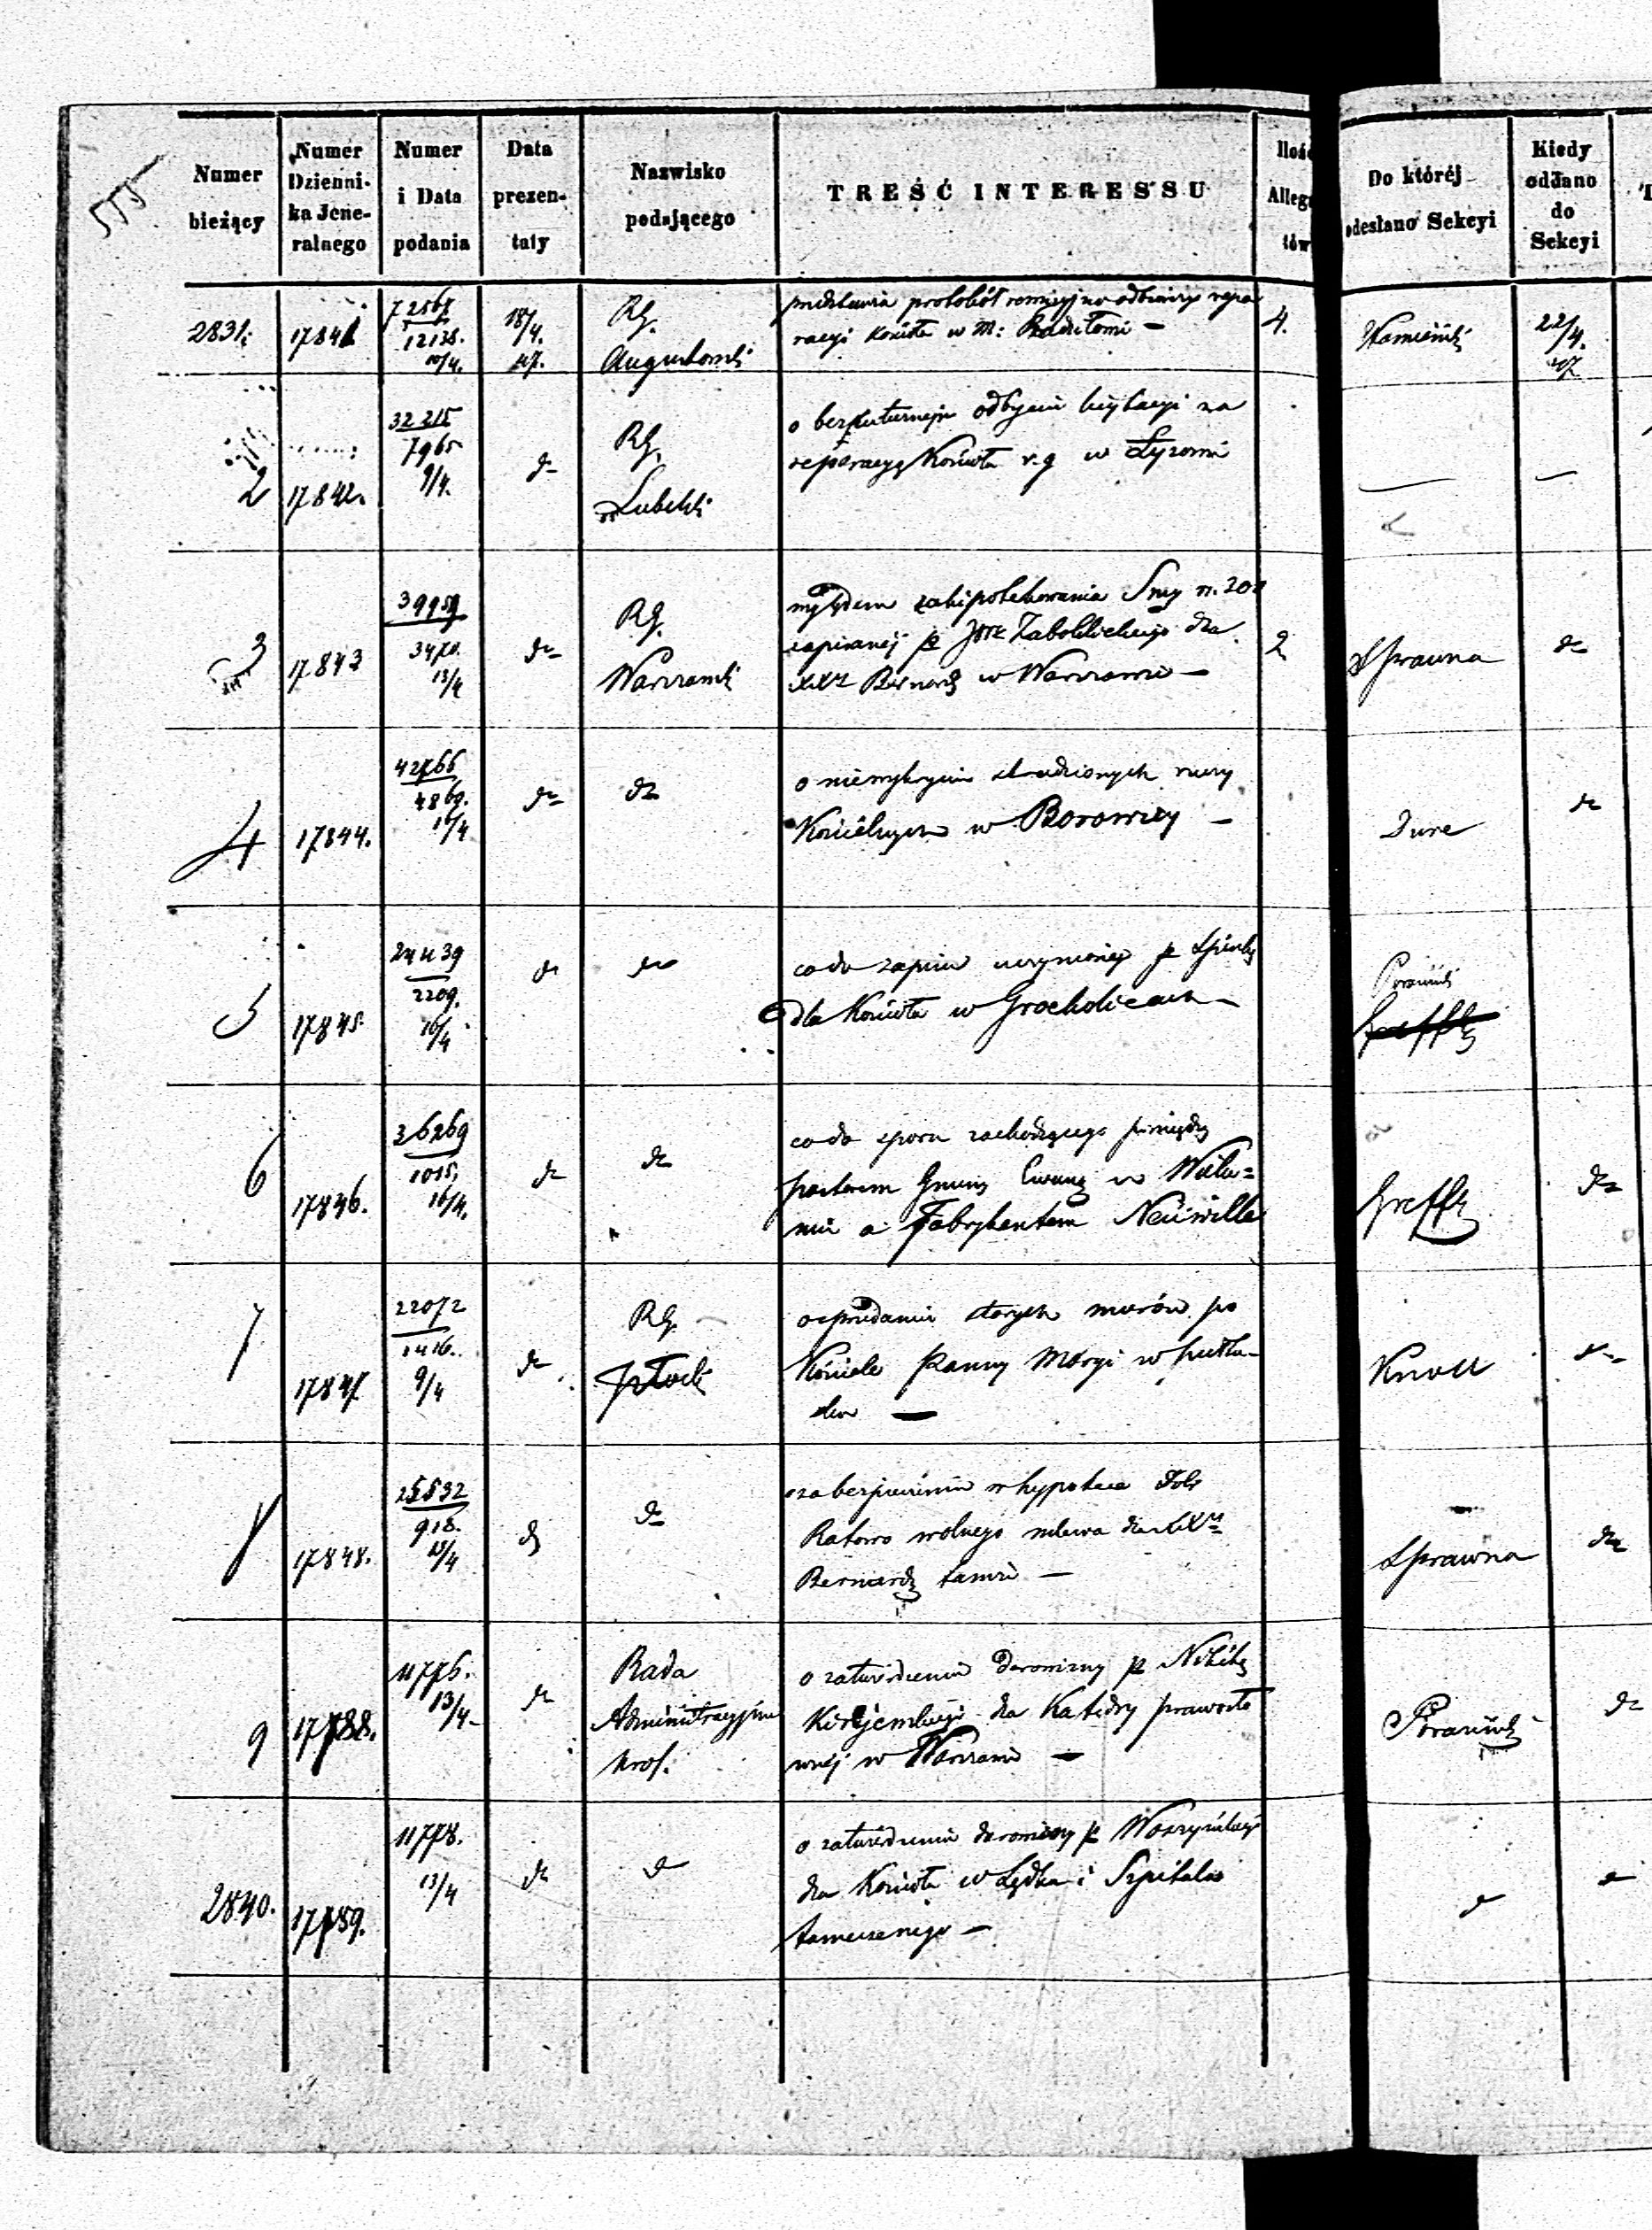 Numer bieżący
Numer Dzienni- ka Jene- ralnego
Numer i Data podania
Data prezen- taty
Nazwisko podającego
TREŚĆ INTERESSU
Ilość Allega tów
Do któréj odesłano Sekcyi
Kiedy oddano do Sekcyi
2831. 17841
12138. 10/4.
18/4. 47.
RG. Augustowski
protokół odbiorczy repa
racyi kościoła w M:
4.
22/4. 47
2 17842.
32215 7965 9/4.
d°
RG. Lubelski
o bezskutecznym odbyciu licytacyi na
reparacyą Kościoła r. g. w
3 17843
3470. 13/4
d°
RG. Warszawski
względem zahipotekowania Sumy
zapisanej dla
XX Bernard w Warszawie —
2
Sprawna
d°
4 17844.
42766 4869.
d°
d°
o niewykryciu skradzionych rzeczy
Kościelnych w Borowicy —
Dure
d°
5 17845.
24439 2209. 16/4
d°
d°
co do zapisu uczynionego
dla Kościoła w Grocholicach —
Prawnik
6 17846.
36269 1015. 16/4.
d°
d°
co do sporu zachodzącego pomiędzy
pastorem Gminy Ewang w Wielu=
niu a Fabrykantem Neuville
Greffk
d°
7 17847
22072 1416. 9/4
d°
RG. Płocki
o sprzedaniu starych murów po
Kościele Panny Maryi w Pułtu-
sku —
Knoll
d°
8 17848.
25532 918. 13/4
d°
d°
zabezpieczeniu w hypotece Dóbr
Ratowo wolnego mlewa dla XX
Bernard tamże —
Sprawna
d°
9 17788.
11776. 13/4
d°
Rada
Administracyjna
Król.
o zatwierdzeniu darowizny p Nikitę
dla Katedry prawosła
wnej w Warszawie —
Prawnik
d°
2840. 17789.
11778. 13/4
d°
d°
o zatwierdzeniu darowizny p
dla Kościoła w Lądku i Szpitala
tamecznego —
d°
d°